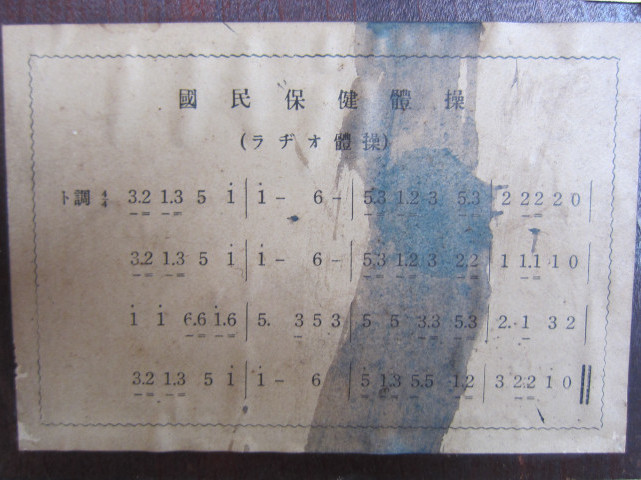 國民保健體操
(ラヂオ體操)
ト調 4/4 3.2 1.3 5 i | i - 6 - | 5.3 1.2 3 5.3 | 2 2 2 2 0 |
3.2 1.3 5 i | i - 6 - | 5.3 1.2 3 2.2 | 1 1.1 1 0 |
i i 6.6 1.6 | 5. 3 5 3 | 5 5 3.3 5.3 | 2. 1 3 2 |
3.2 1.3 5 i | i - 6 | 5 1.3 5.5 1.2 | 3 2.2 i 0 ||